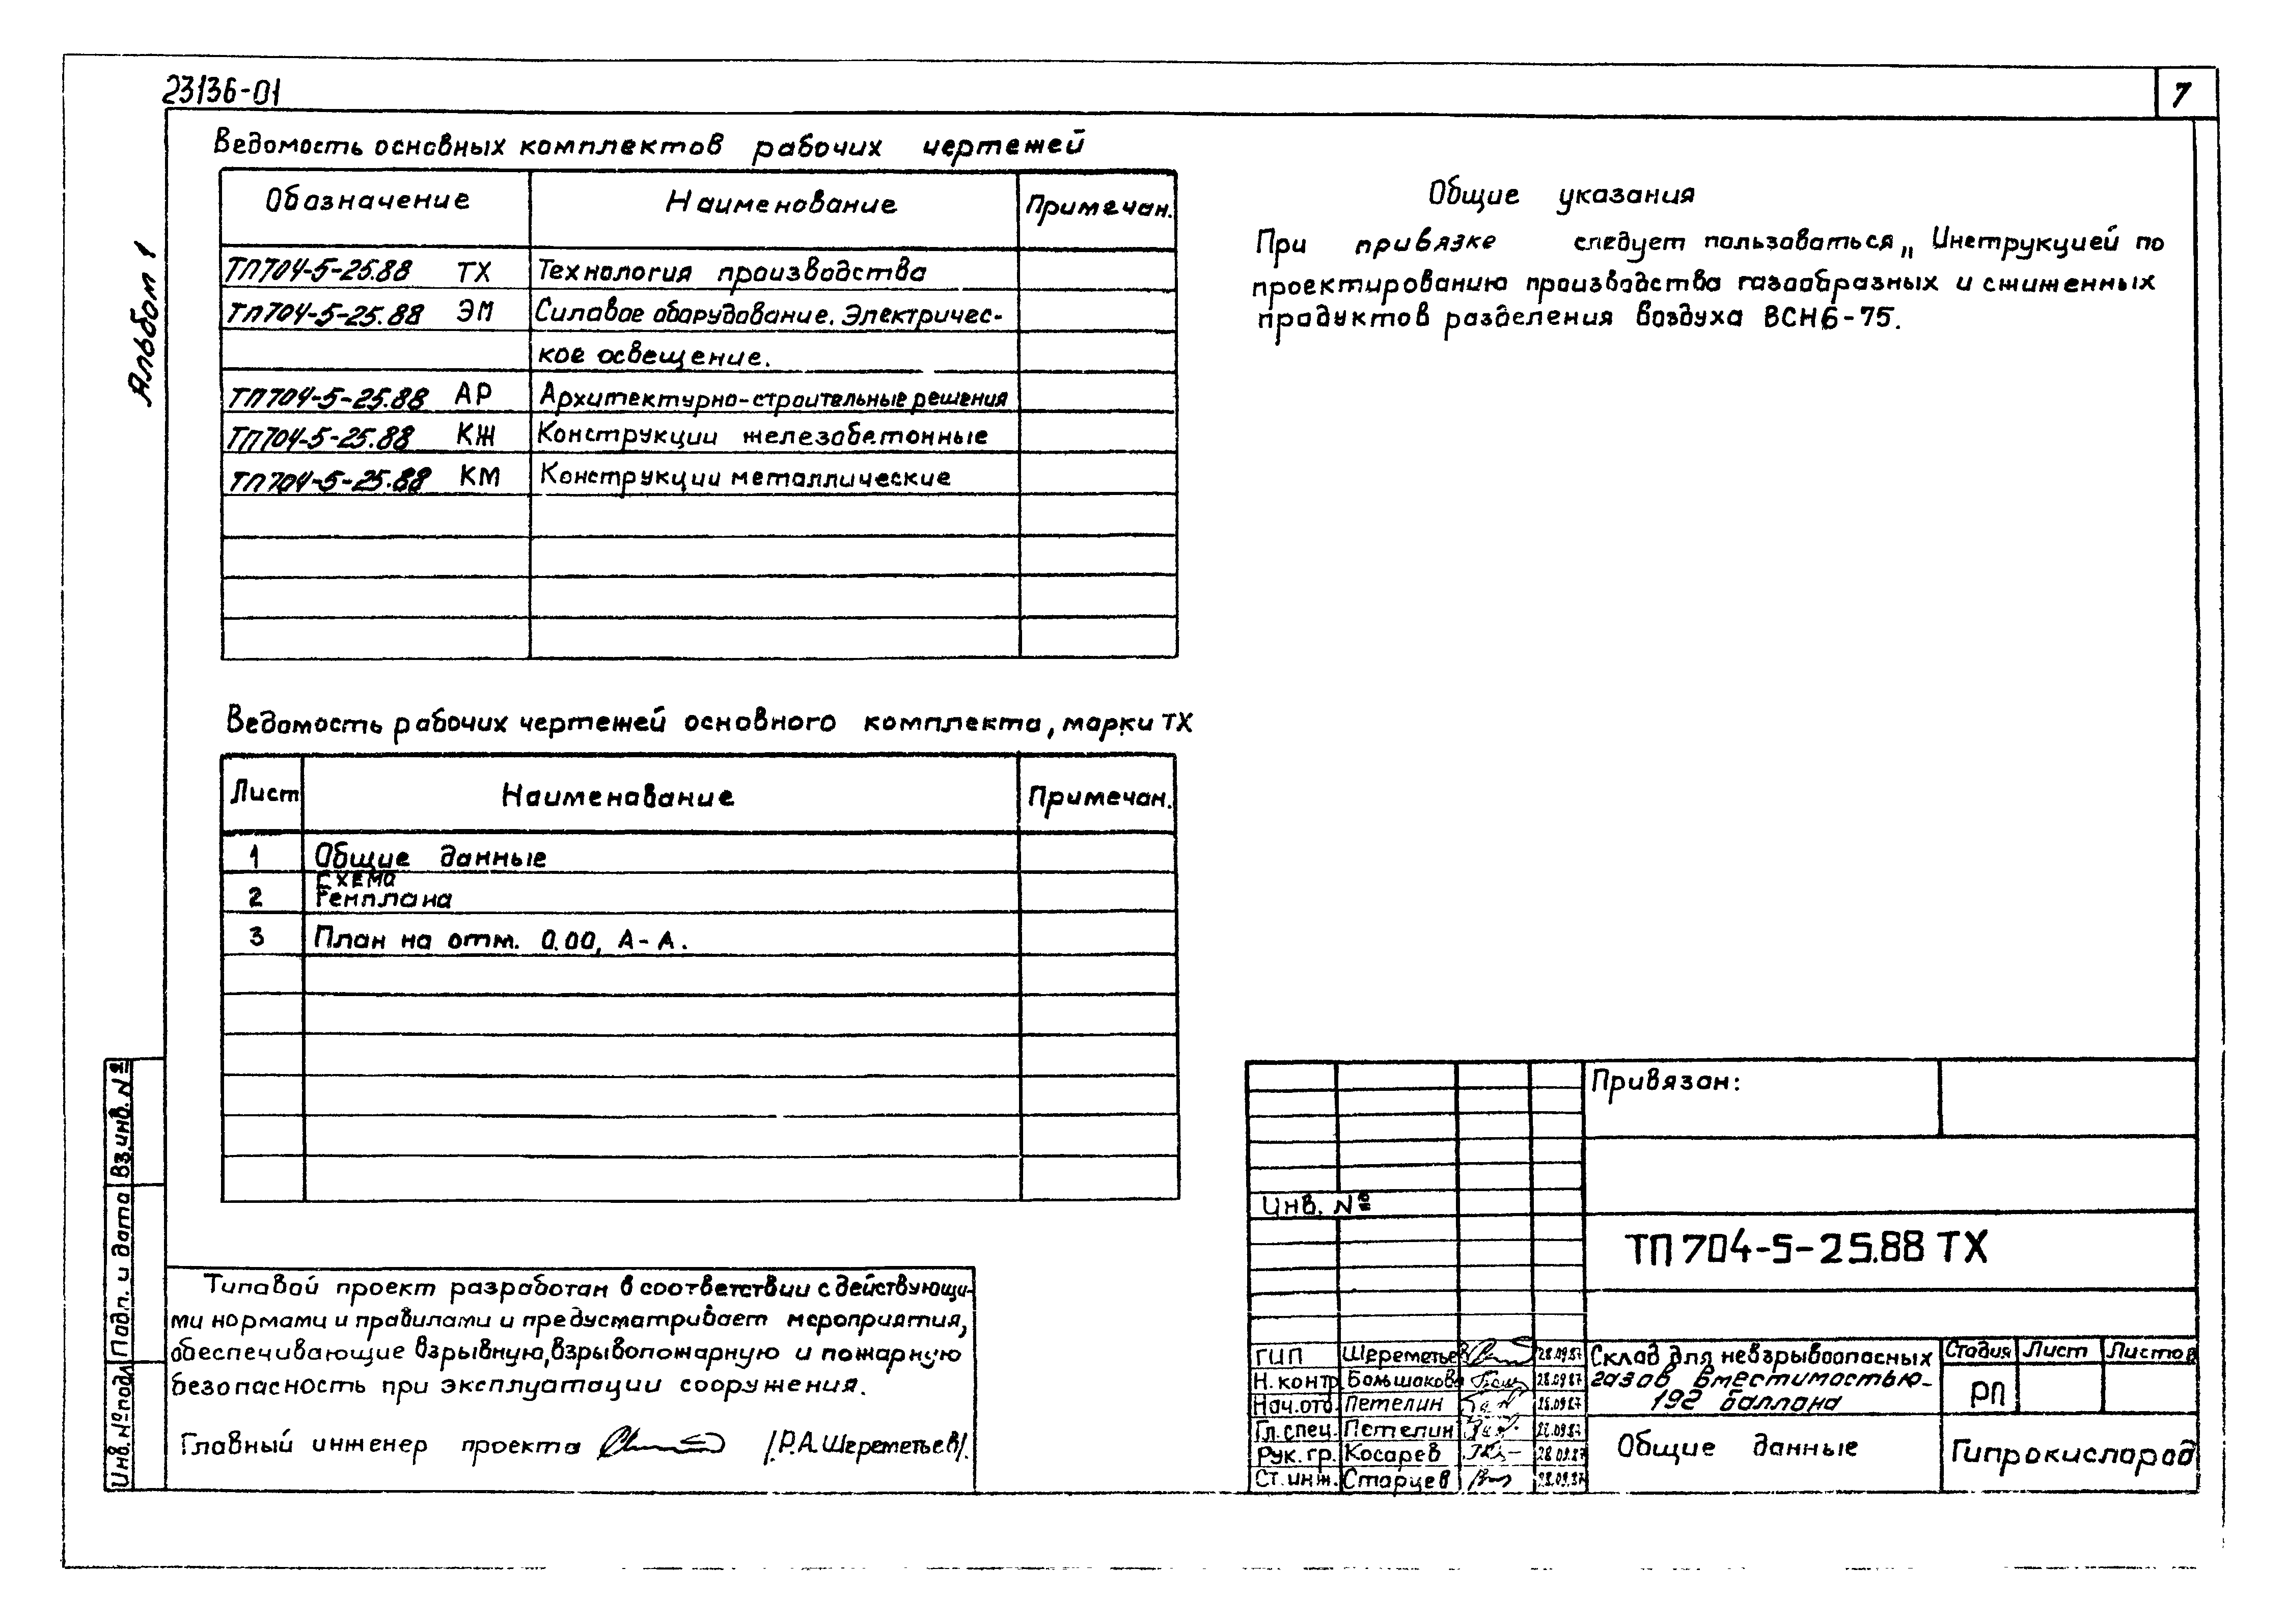 23136-01
7
Альбом 1
Ведомость основных комплектов рабочих чертежей
Обозначение Наименование Примечан.
ТП704-5-25.88 ТХ Технология производства
ТП704-5-25.88 ЭМ Силовое оборудование. Электричес-
кое освещение.
ТП704-5-25.88 АР Архитектурно-строительные решения
ТП704-5-25.88 КЖ Конструкции железобетонные
ТП704-5-25.88 КМ Конструкции металлические
Общие указания
При привязке следует пользоваться „Инструкцией по
проектированию производства газообразных и сжиженных
продуктов разделения воздуха ВСН6-75.
Ведомость рабочих чертежей основного комплекта, марки ТХ
Лист Наименование Примечан.
1 Общие данные
Схема
2 Генплана
3 План на отм. 0.00, А-А.
Типовой проект разработан в соответствии с действующи-
ми нормами и правилами и предусматривает мероприятия,
обеспечивающие взрывную, взрывопожарную и пожарную
безопасность при эксплуатации сооружения.
Главный инженер проекта /Р.А.Шереметьев/.
Инв. № подл Подп. и дата Вз. инв. №
Привязан:
Инв. №
ТП 704-5-25.88 ТХ
ГИП Шереметьев 28.09.87
Н. контр. Большакова 28.09.87
Нач. отд. Петелин 28.09.87
Гл. спец. Петелин 28.09.87
Рук. гр. Косарев 28.09.87
Ст. инж. Старцев 28.09.87
Склад для невзрывоопасных
газов вместимостью-
192 баллона
Стадия Лист Листов
РП
Общие данные
Гипрокислород